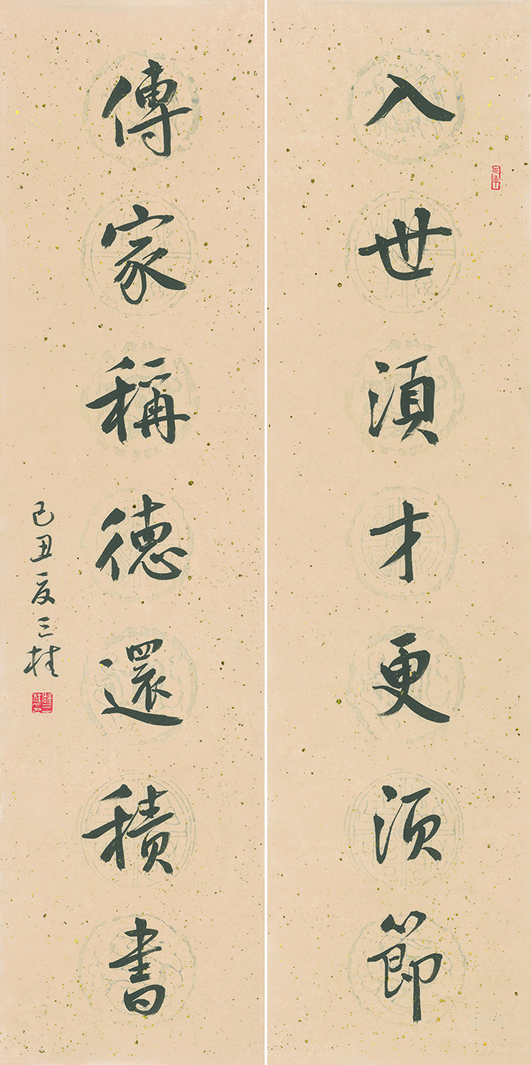 入世須才更須節
傳家稱德還積書
己丑夏三桂